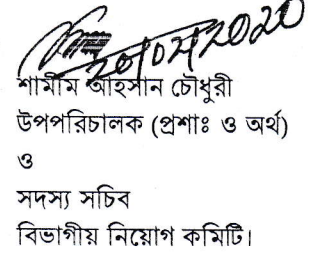 20/02/2020
শামীম আহসান চৌধুরী
উপপরিচালক (প্রশাঃ ও অর্থ)
ও
সদস্য সচিব
বিভাগীয় নিয়োগ কমিটি।